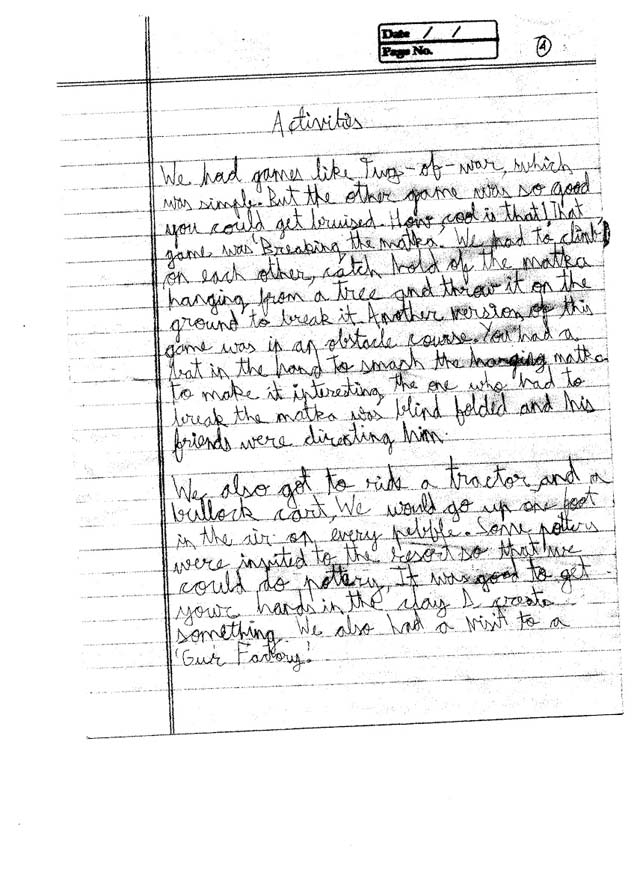 Date / /
Page No.
4
Activities
We had games like Tug-of-war, which
was simple. But the other game was so good
you could get bruised. How cool is that! That
game was 'Breaking the matka. We had to climb
on each other, catch hold of the matka
hanging from a tree and throw it on the
ground to break it. Another version of this
game was in an obstacle course. You had a
bat in the hand to smash the hanging matka
to make it interesting the one who had to
break the matka was blind folded and his
friends were directing him.
We also got to ride a tractor and a
bullock cart, We would go up one foot
in the air on every pebble. Some potters
were invited to the resort so that we
could do pottery. It was good to get
your hands in the clay & create
something. We also had a visit to a
'Gur Factory'.